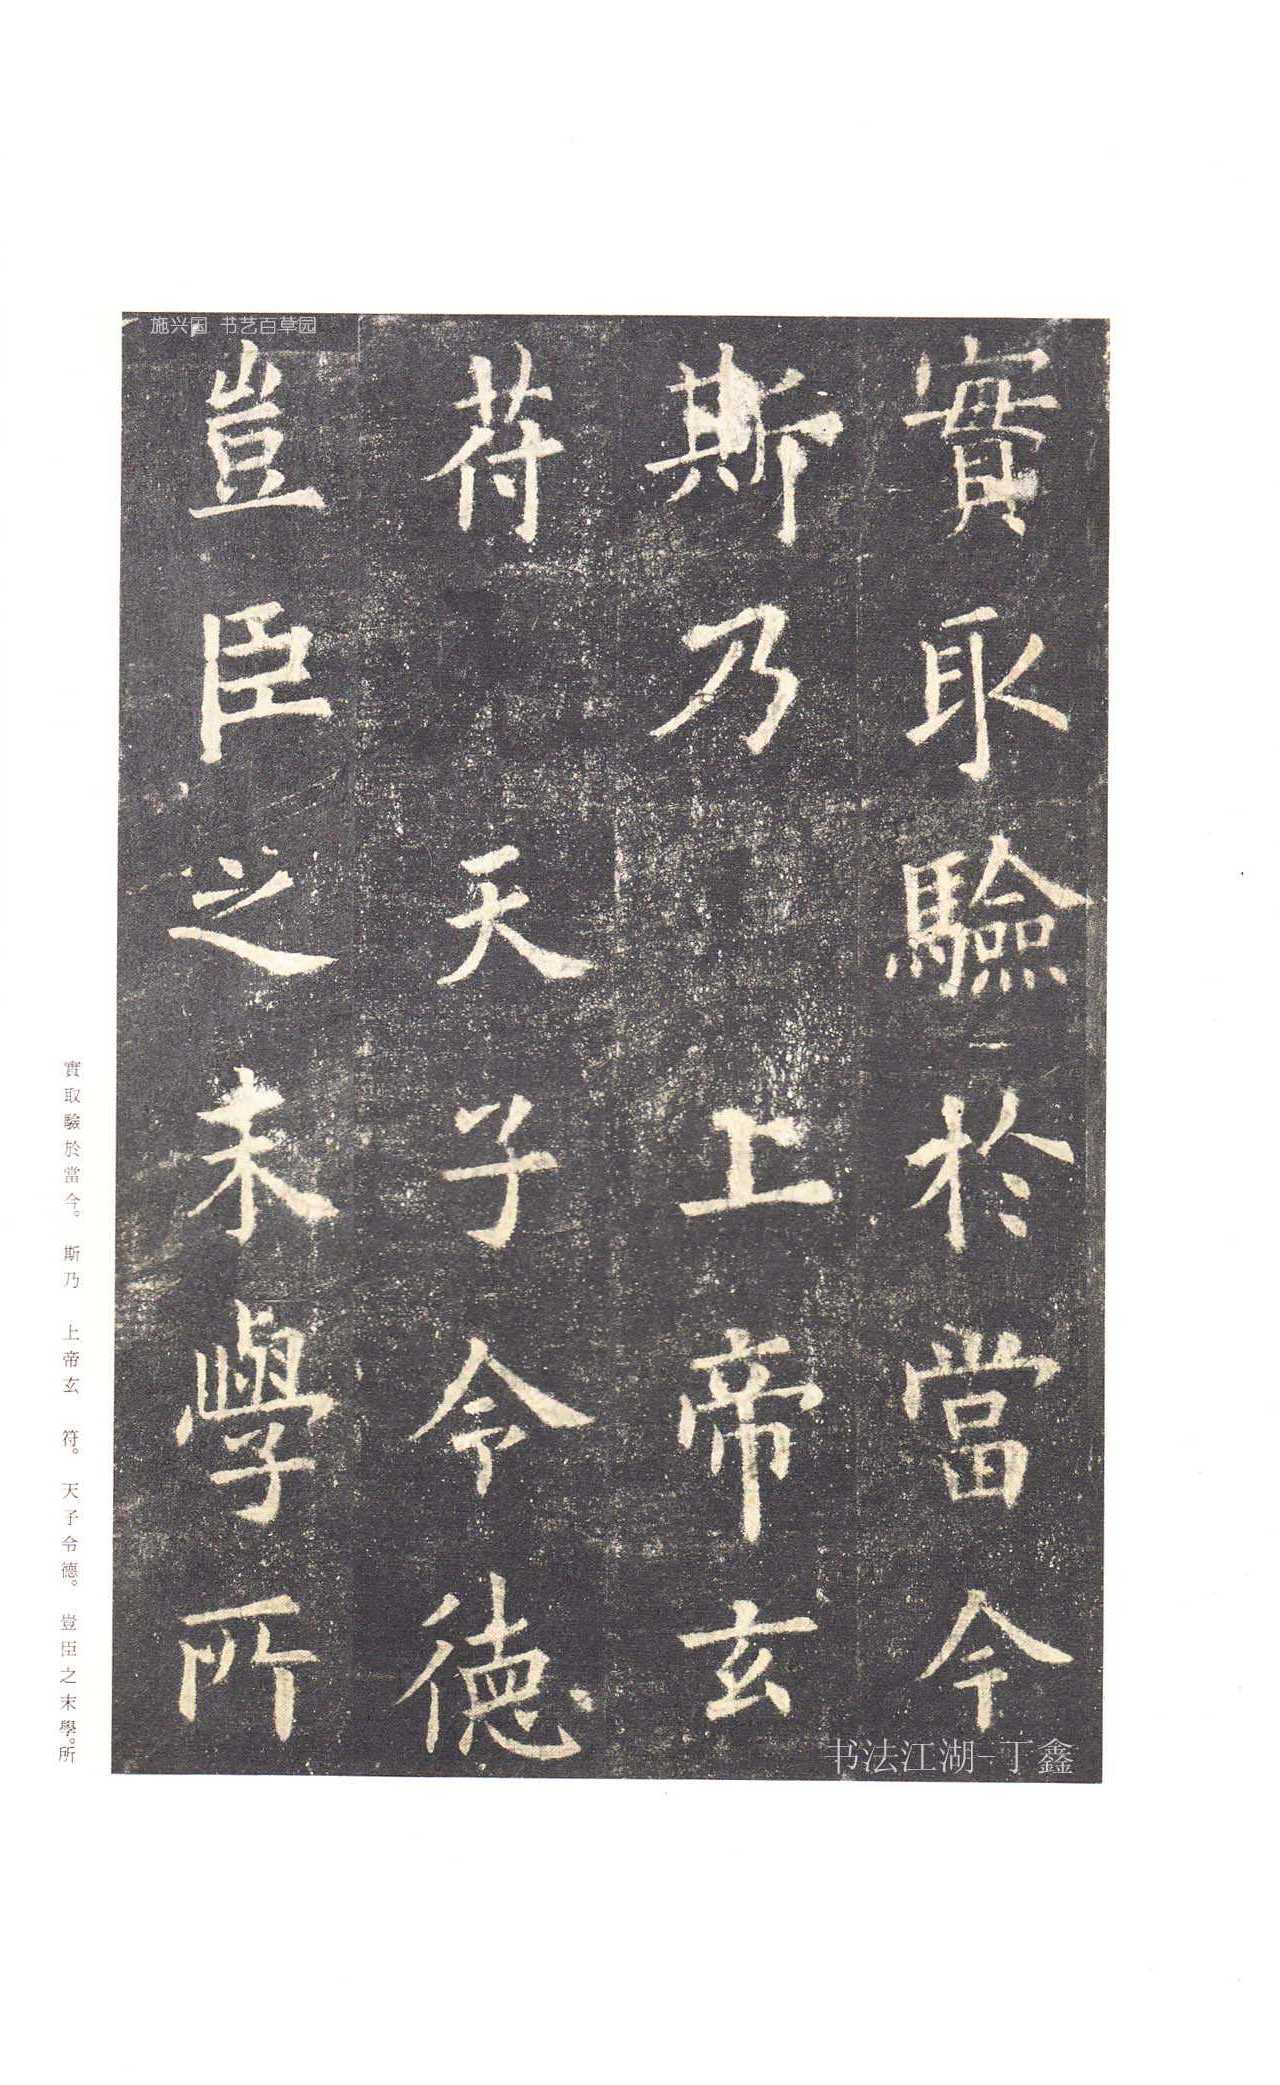 施兴国 书艺百草园
實取驗於當今
斯乃 上帝玄
符 天子令德
豈臣之末學所
書法江湖-丁鑫
實取驗於當今。斯乃 上帝玄 符。天子令德。豈臣之末學。所